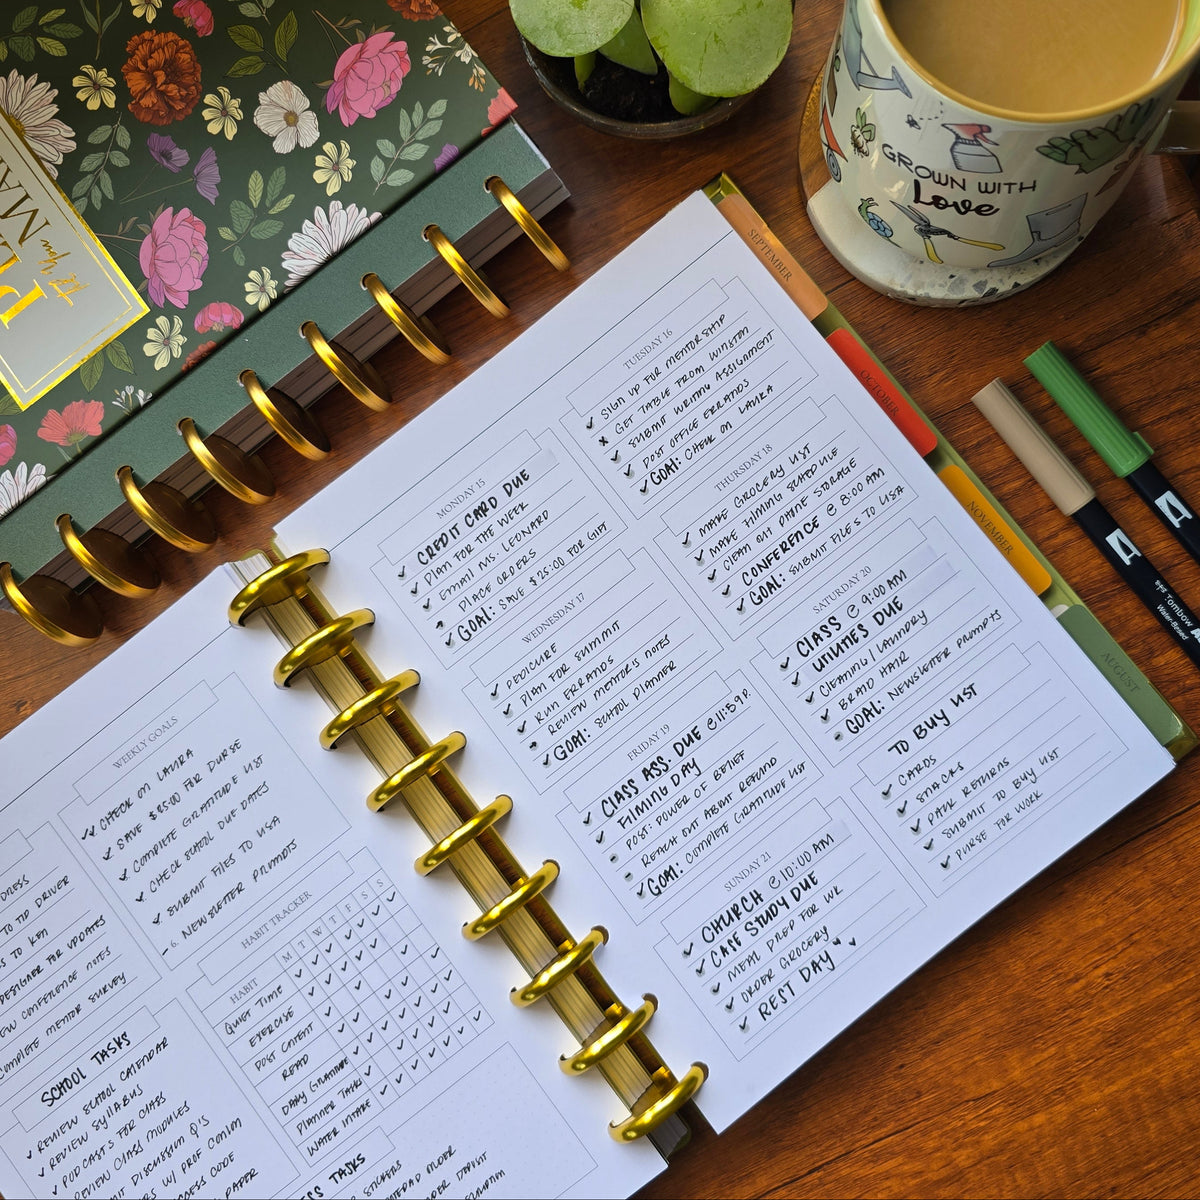 GROWN WITH
Love
SEPTEMBER
OCTOBER
NOVEMBER
AUGUST
Tombow
Water-Based
MONDAY 15
CREDIT CARD DUE
PLAN FOR THE WEEK
EMAIL MS. LEONARD
PLACE ORDERS
GOAL: SAVE $25.00 FOR GIFT
TUESDAY 16
SIGN UP FOR MENTORSHIP
GET TABLE FROM WINSTON
SUBMIT WRITING ASSIGNMENT
POST OFFICE ERRANDS
GOAL: CHECK ON LAURA
WEDNESDAY 17
PEDICURE
PLAN FOR SUMMIT
RUN ERRANDS
REVIEW MENTOR'S NOTES
GOAL: SCHOOL PLANNER
THURSDAY 18
MAKE GROCERY LIST
MAKE FILMING SCHEDULE
CLEAN OUT PHONE STORAGE
CONFERENCE @ 8:00 AM
GOAL: SUBMIT FILES TO USA
FRIDAY 19
CLASS ASS. DUE @ 11:59 P.
FILMING DAY
POST: POWER OF BELIEF
REACH OUT ABOUT REFUND
GOAL: COMPLETE GRATITUDE LIST
SATURDAY 20
CLASS @ 9:00 AM
UTILITIES DUE
CLEANING / LAUNDRY
BRAID HAIR
GOAL: NEWSLETTER PROMPTS
SUNDAY 21
CHURCH @ 10:00 AM
CASE STUDY DUE
MEAL PREP FOR WK
ORDER GROCERY
REST DAY
TO BUY LIST
CARDS
SNACKS
PACK RETURNS
SUBMIT TO BUY LIST
PURSE FOR WORK
WEEKLY GOALS
CHECK ON LAURA
SAVE $25.00 FOR PURSE
COMPLETE GRATITUDE LIST
CHECK SCHOOL DUE DATES
SUBMIT FILES TO USA
6. NEWSLETTER PROMPTS
HABIT TRACKER
HABIT M T W T F S S
QUIET TIME
EXERCISE
POST CONTENT
READ
DAILY GRATITUDE
PLANNER TASKS
WATER INTAKE
DRESS
TO TIP DRIVER
TO KEN
DESIGNER FOR UPDATES
CONFERENCE NOTES
COMPLETE MENTOR SURVEY
SCHOOL TASKS
REVIEW SCHOOL CALENDAR
REVIEW SYLLABUS
PODCASTS FOR CLASS
REVIEW CLASS MODULES
DISCUSSION Q'S
W/ PROF CONIM
CODE
PAPER
TASKS
STICKERS
ORDER
DEPOSIT